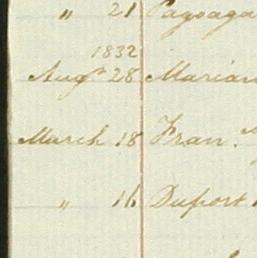 " 21 Cagoaga
1832
Augt 28 Marian
March 18 Fran.
" 16 Duport